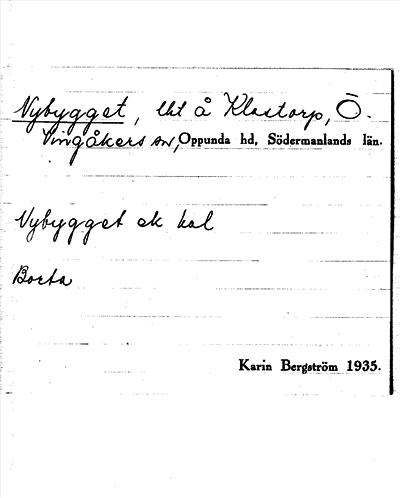 Nybygget, lht å Klastorp, Ö.
Vingåkers sn, Oppunda hd, Södermanlands län.
Nybygget ek kal
Borta
Karin Bergström 1935.